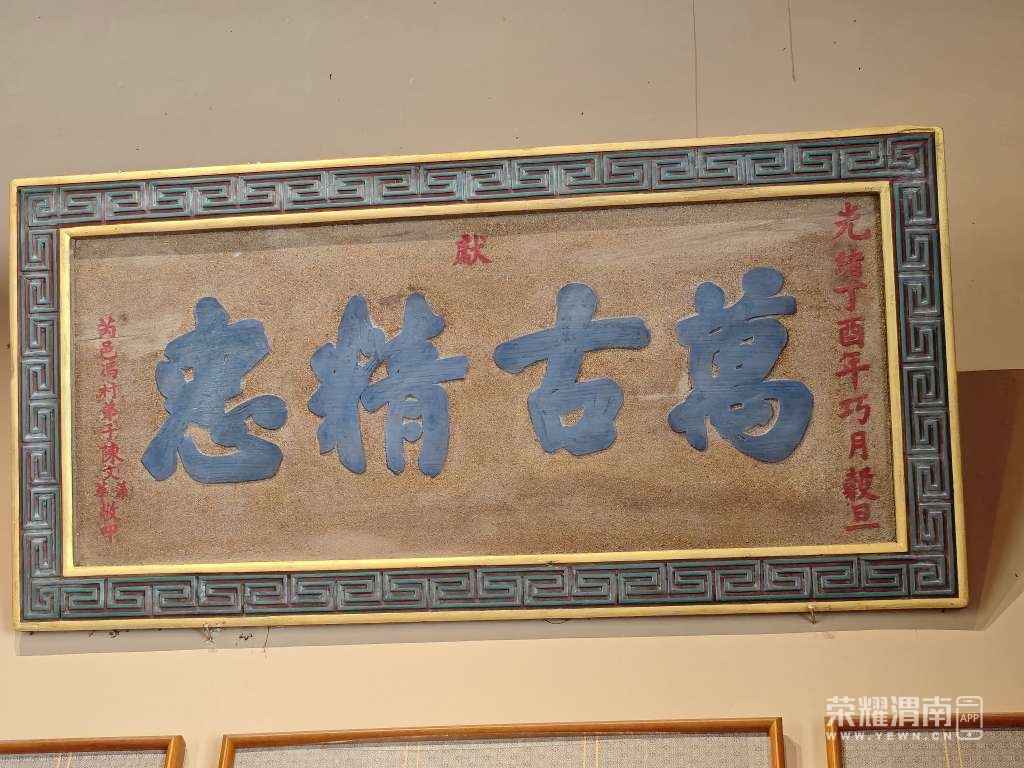 光緒丁酉年巧月穀旦
獻
萬古精忠
芮邑馮村弟子陳文
敬叩
荣耀渭南
APP
WWW.YEWN.CN